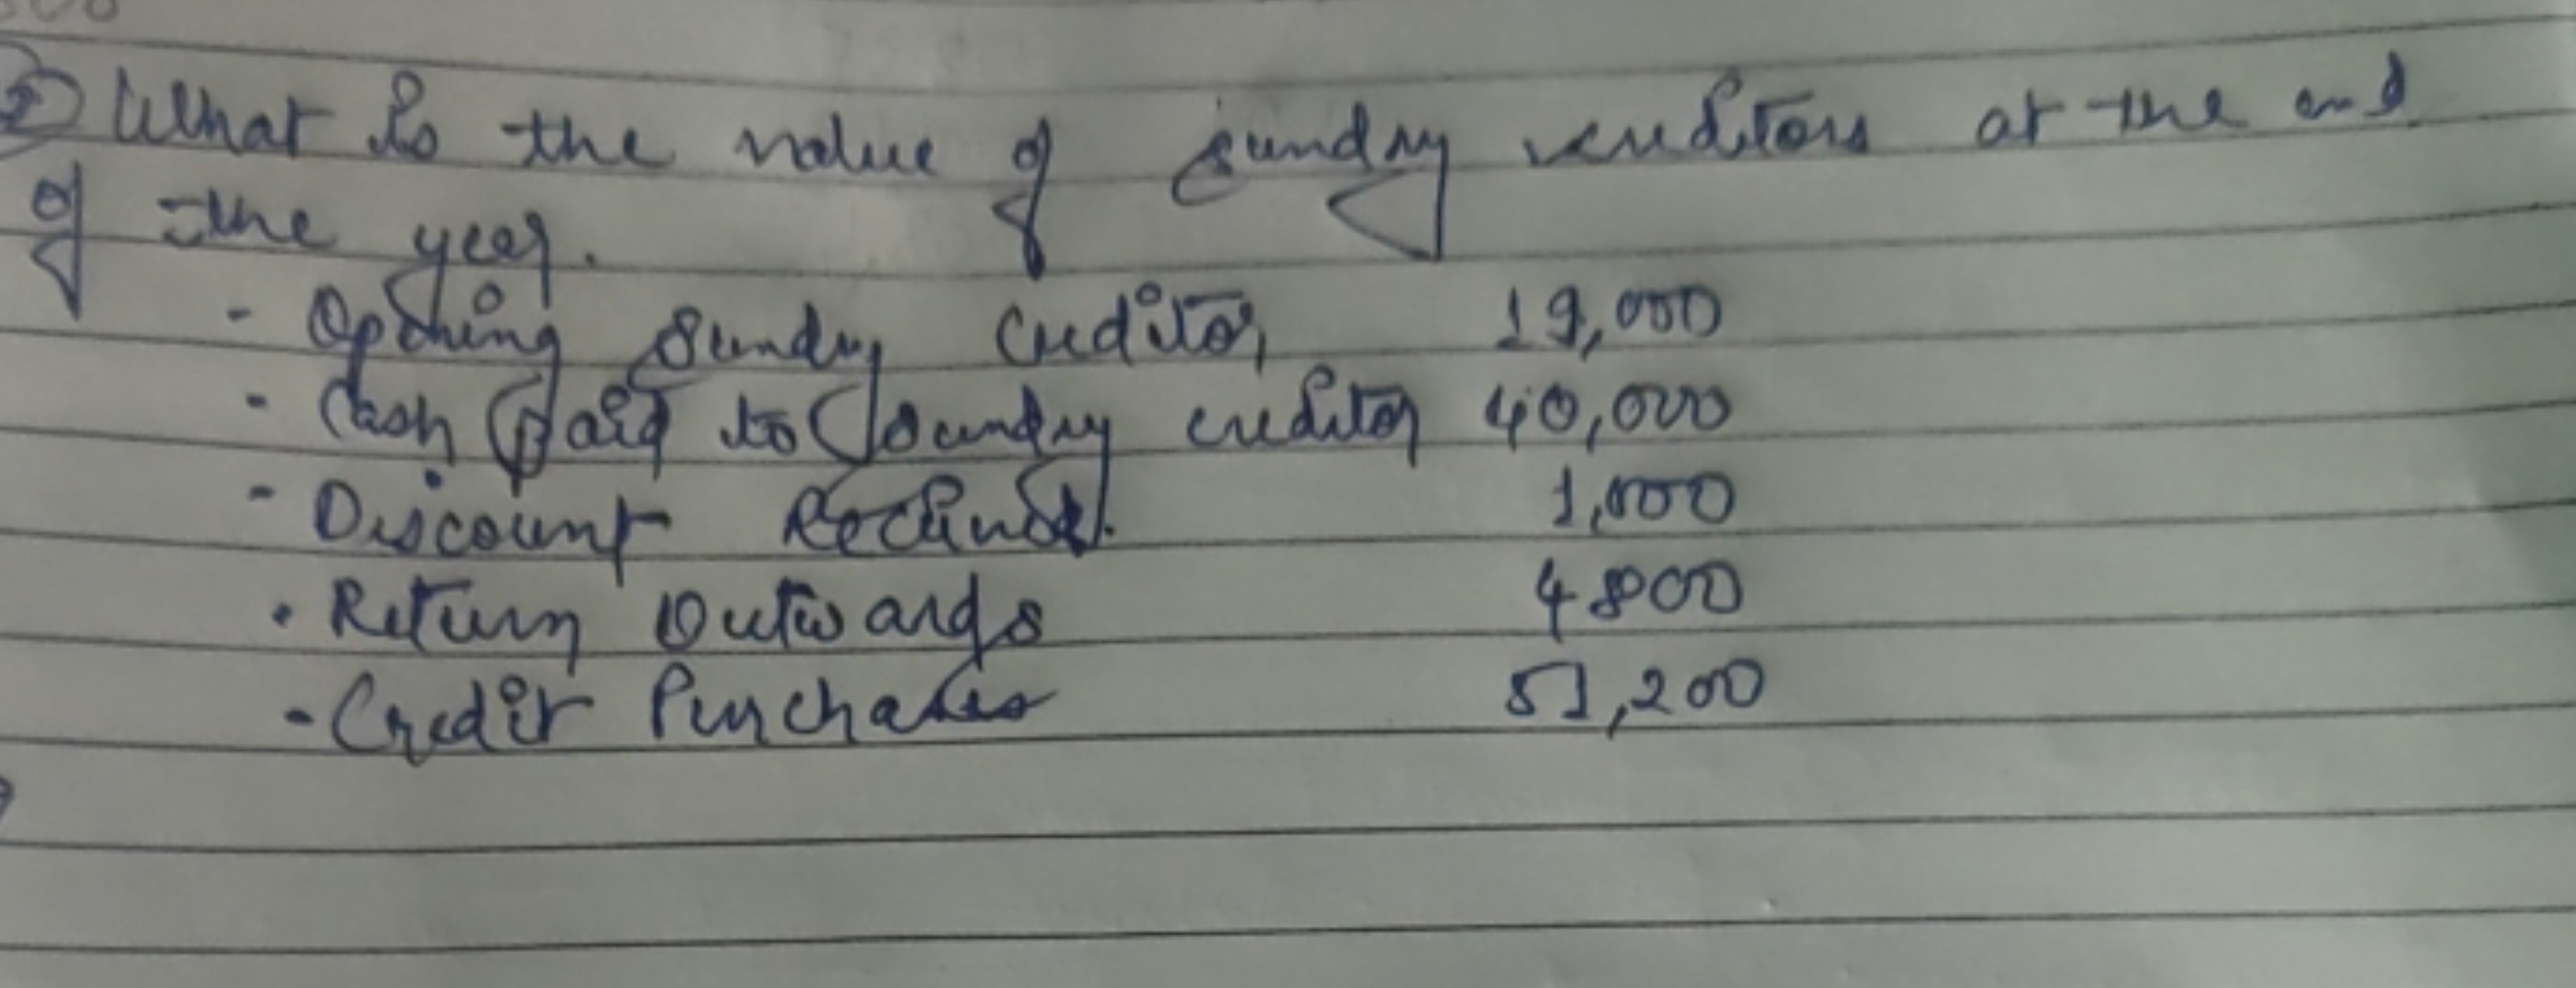 2) What is the value of sundry creditors at the end
of the year.
- Opening Sundry Creditor 19,000
- Cash paid to Sundry creditor 40,000
- Discount Received. 1,000
. Return Outwards 4800
- Credit Purchases 51,200